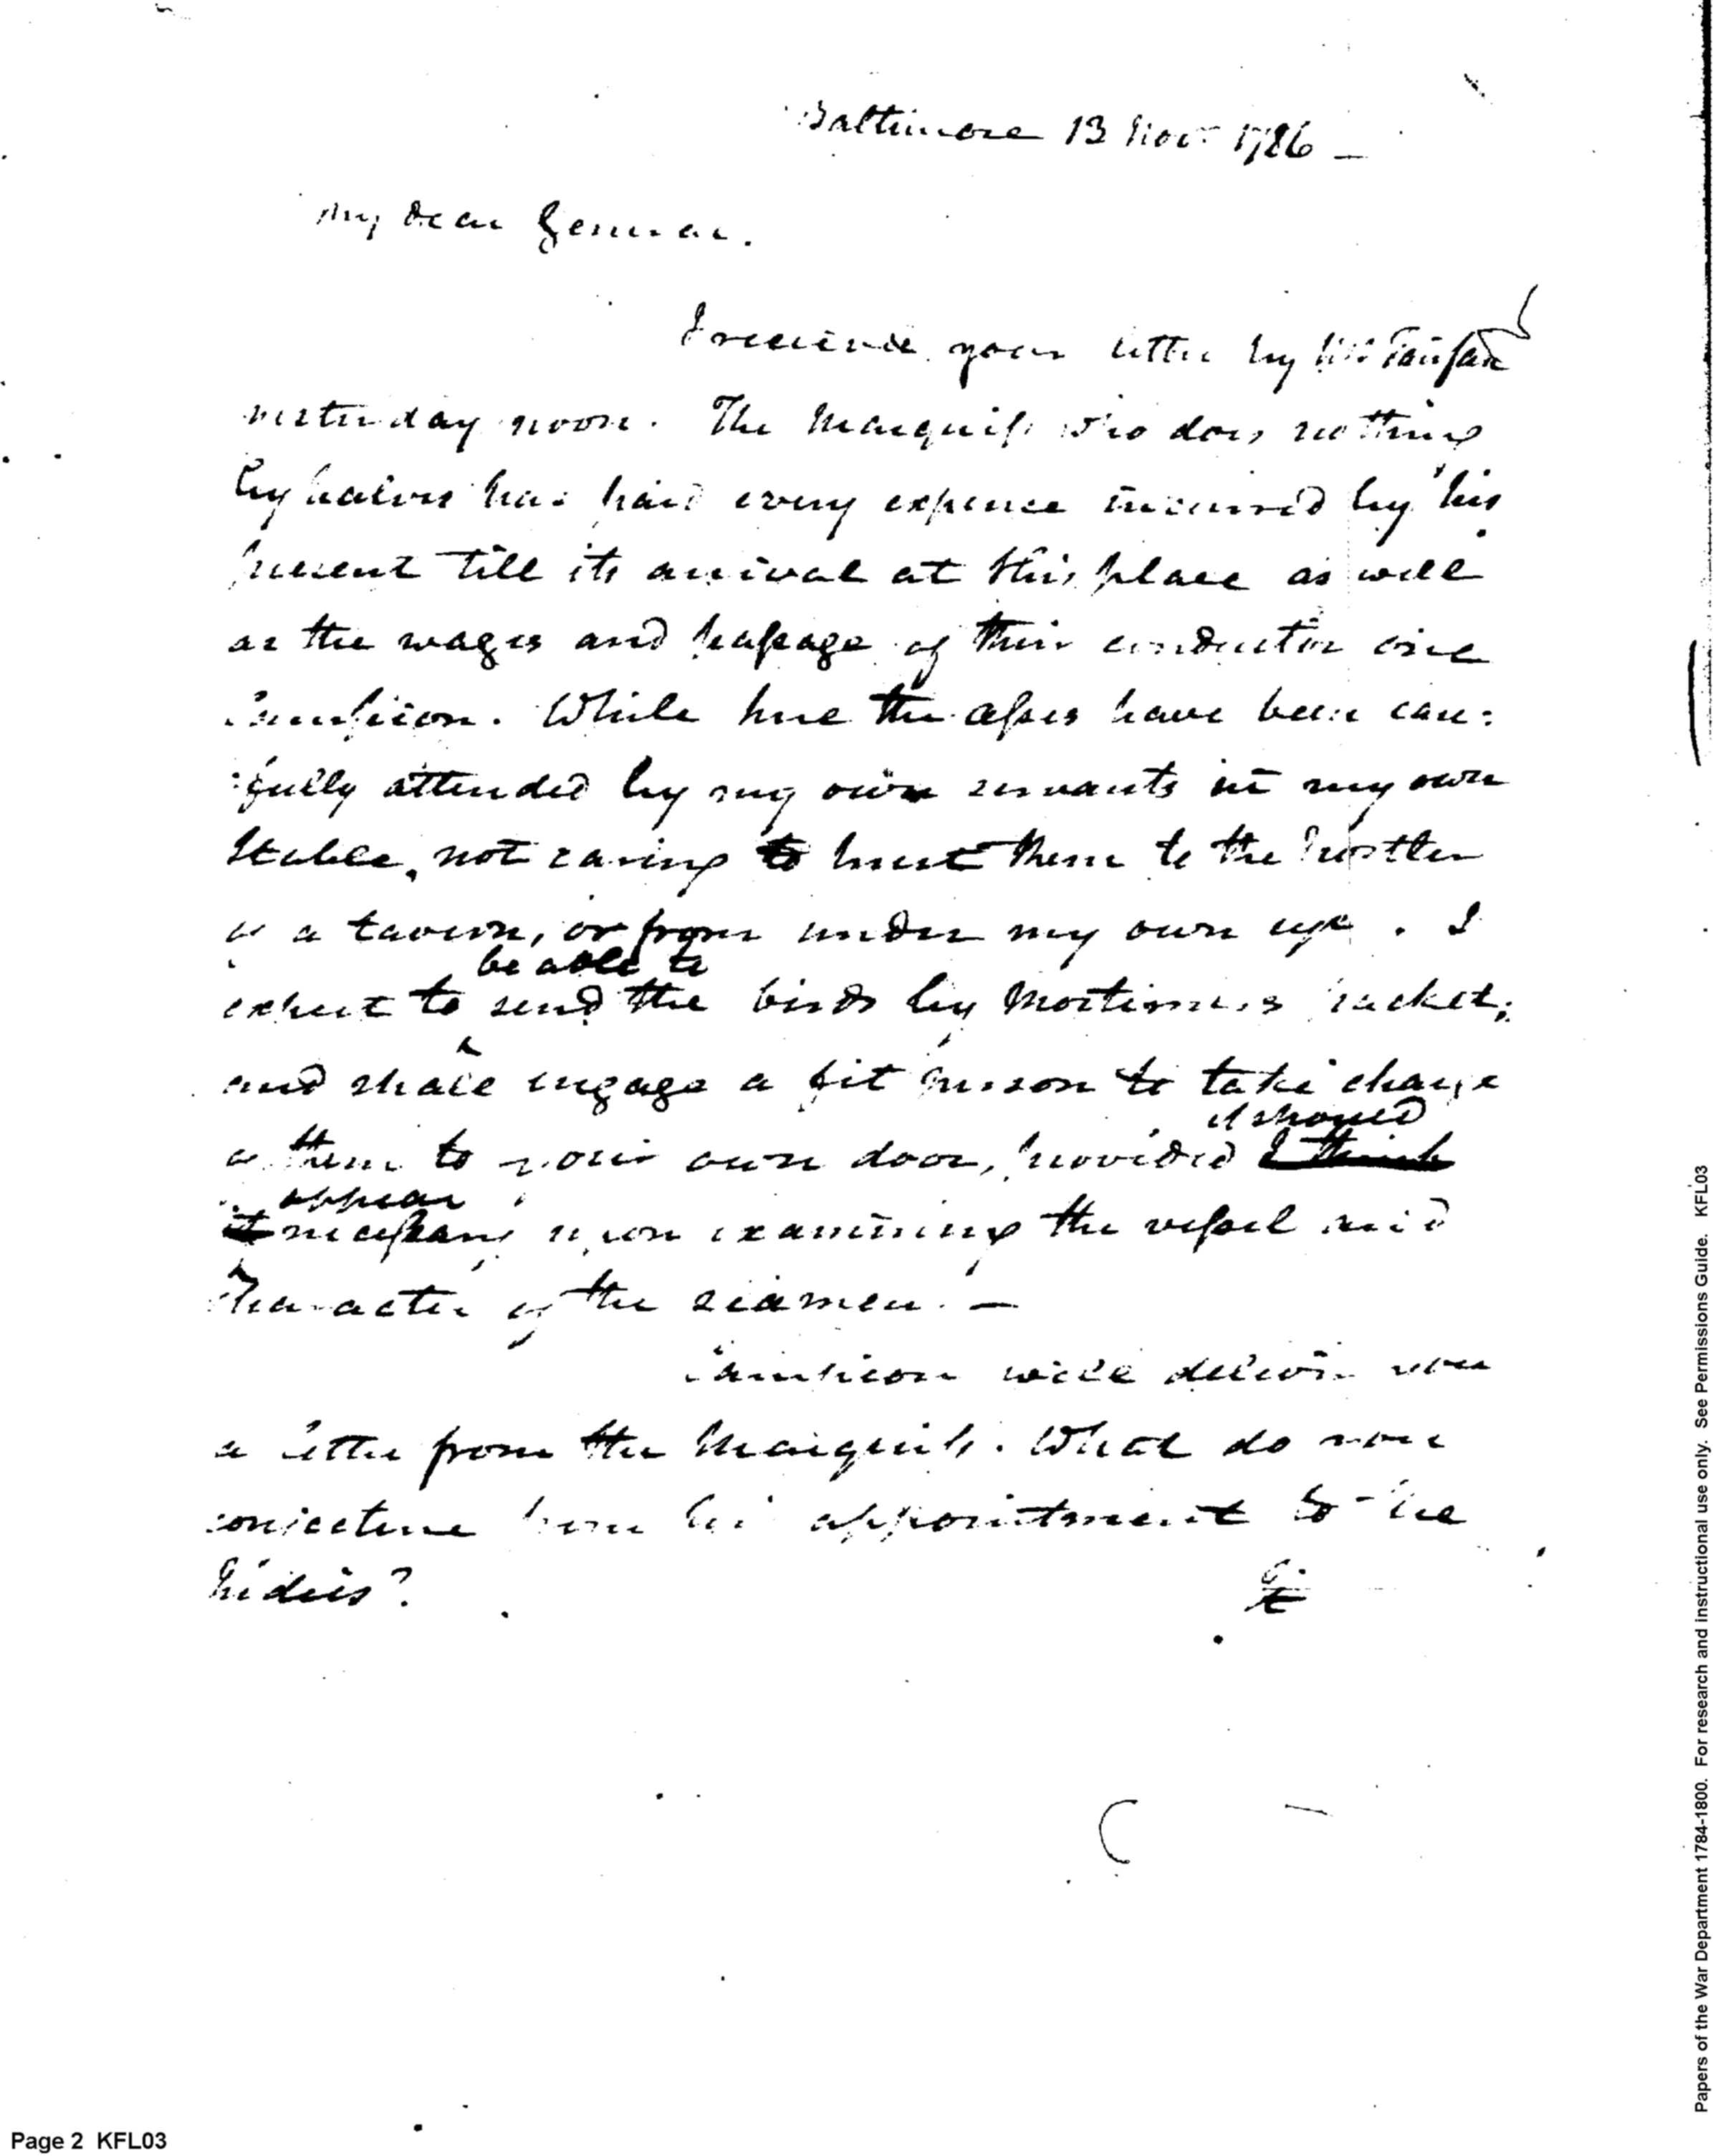 Baltimore 13 Nov.r 1786 —
My Dear General.
I received your letter by Mr Fairfax
yesterday noon. The Marquiss who does nothing
by halves has paid every expence incurred by his
present till its arrival at this place as well
as the wages and passage of their conductor one
Campion. While here the asses have been care:
:fully attended by my own servants in my own
Stable, not caring to trust them to the hostler
of a tavern, or from under my own eye. I
be able to
expect to send the birds by Mortimers packet;
and shall engage a fit person to take charge
it should
of them to your own door, provided I think
appear
it necessary upon examining the vessel and
Character of the seamen. —
Campion will deliver you
a letter from the Marquiss. What do you
conjecture from his appointment to the
It
Page 2 KFL03
Papers of the War Department 1784-1800. For research and instructional use only. See Permissions Guide. KFL03